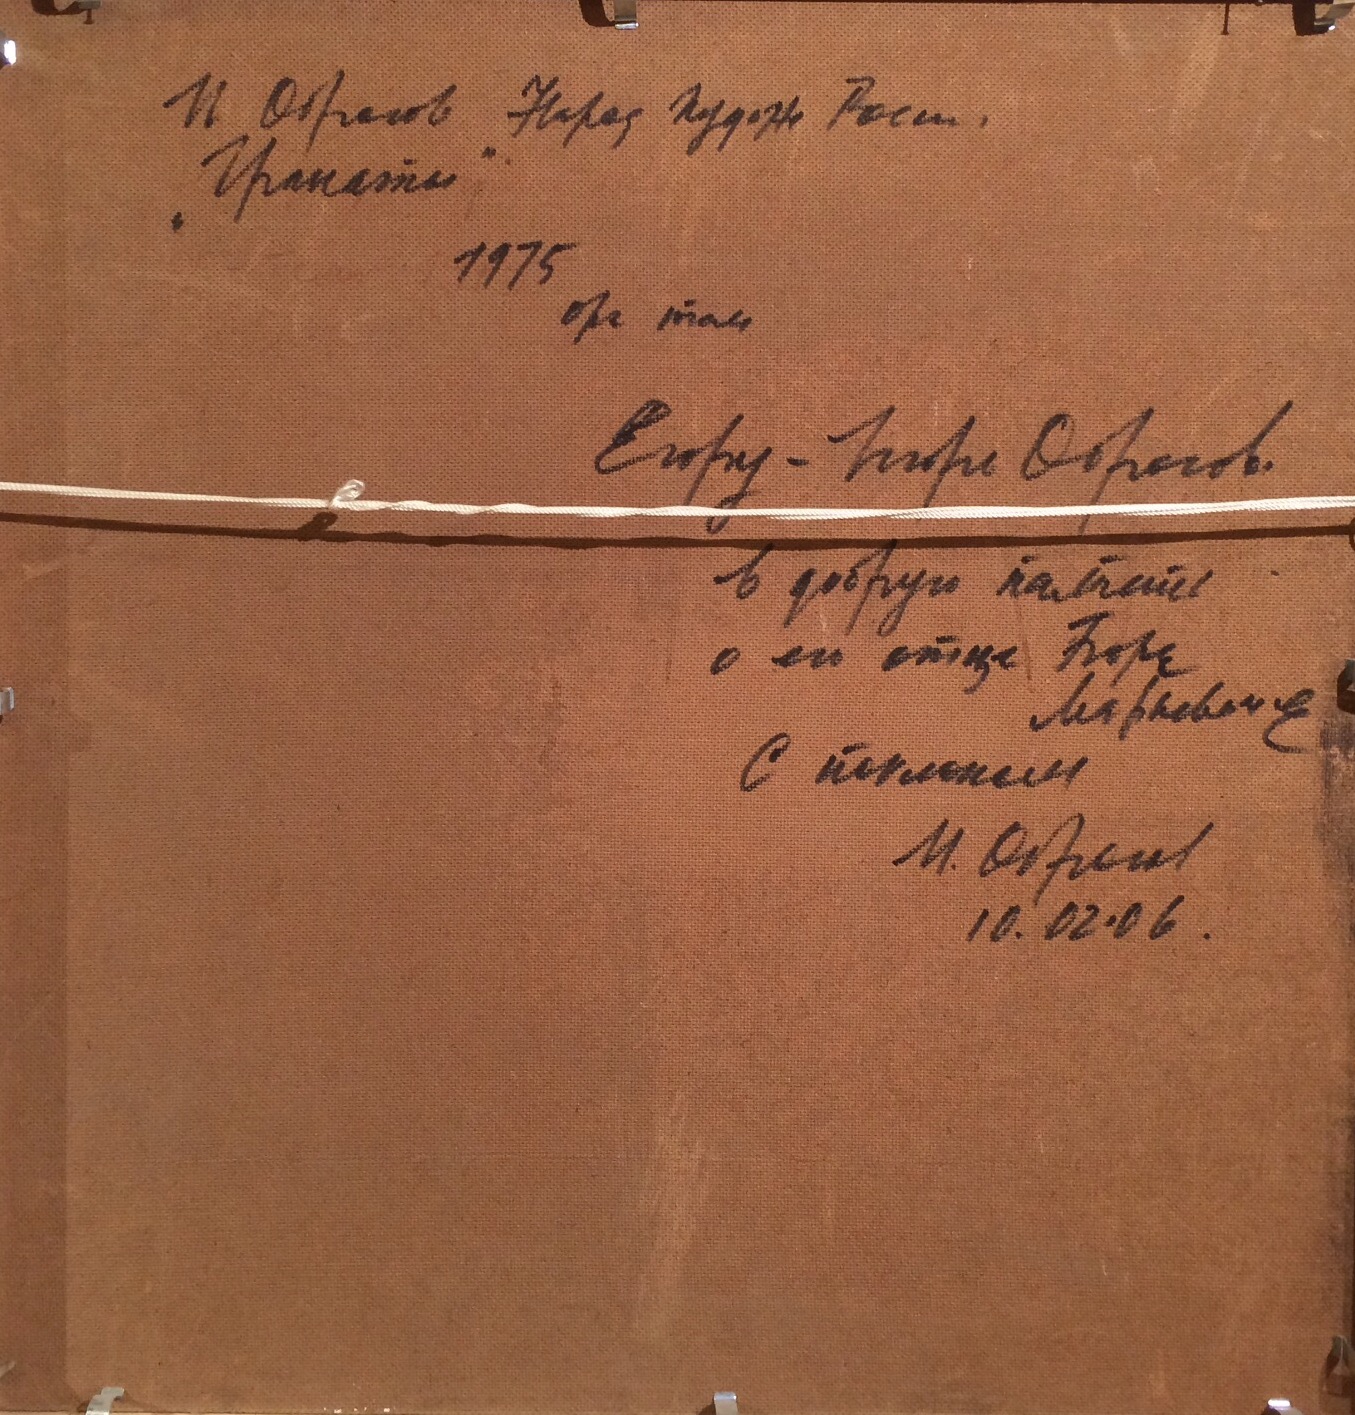 И Обросов Народ худож Росси.
„Гранаты"
1975
орг темп
Егору - Игорь Обросов.
в добрую память
о его отце
Марковиче
С поклоном
И. Обросов
10.02.06.